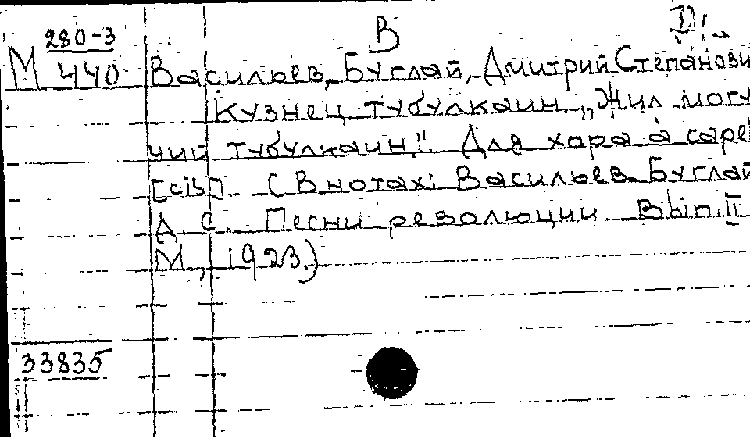 280-3 В
М 440 Васильев-Буглай, Дмитрий Степанови
Кузнец тубулкаин „Жил могу
чий тубулкаин". Для хора a capel
[cis]. (В нотах: Васильев-Буглай
Д. С. Песни революции. Вып. II
М., 1923.)
33835